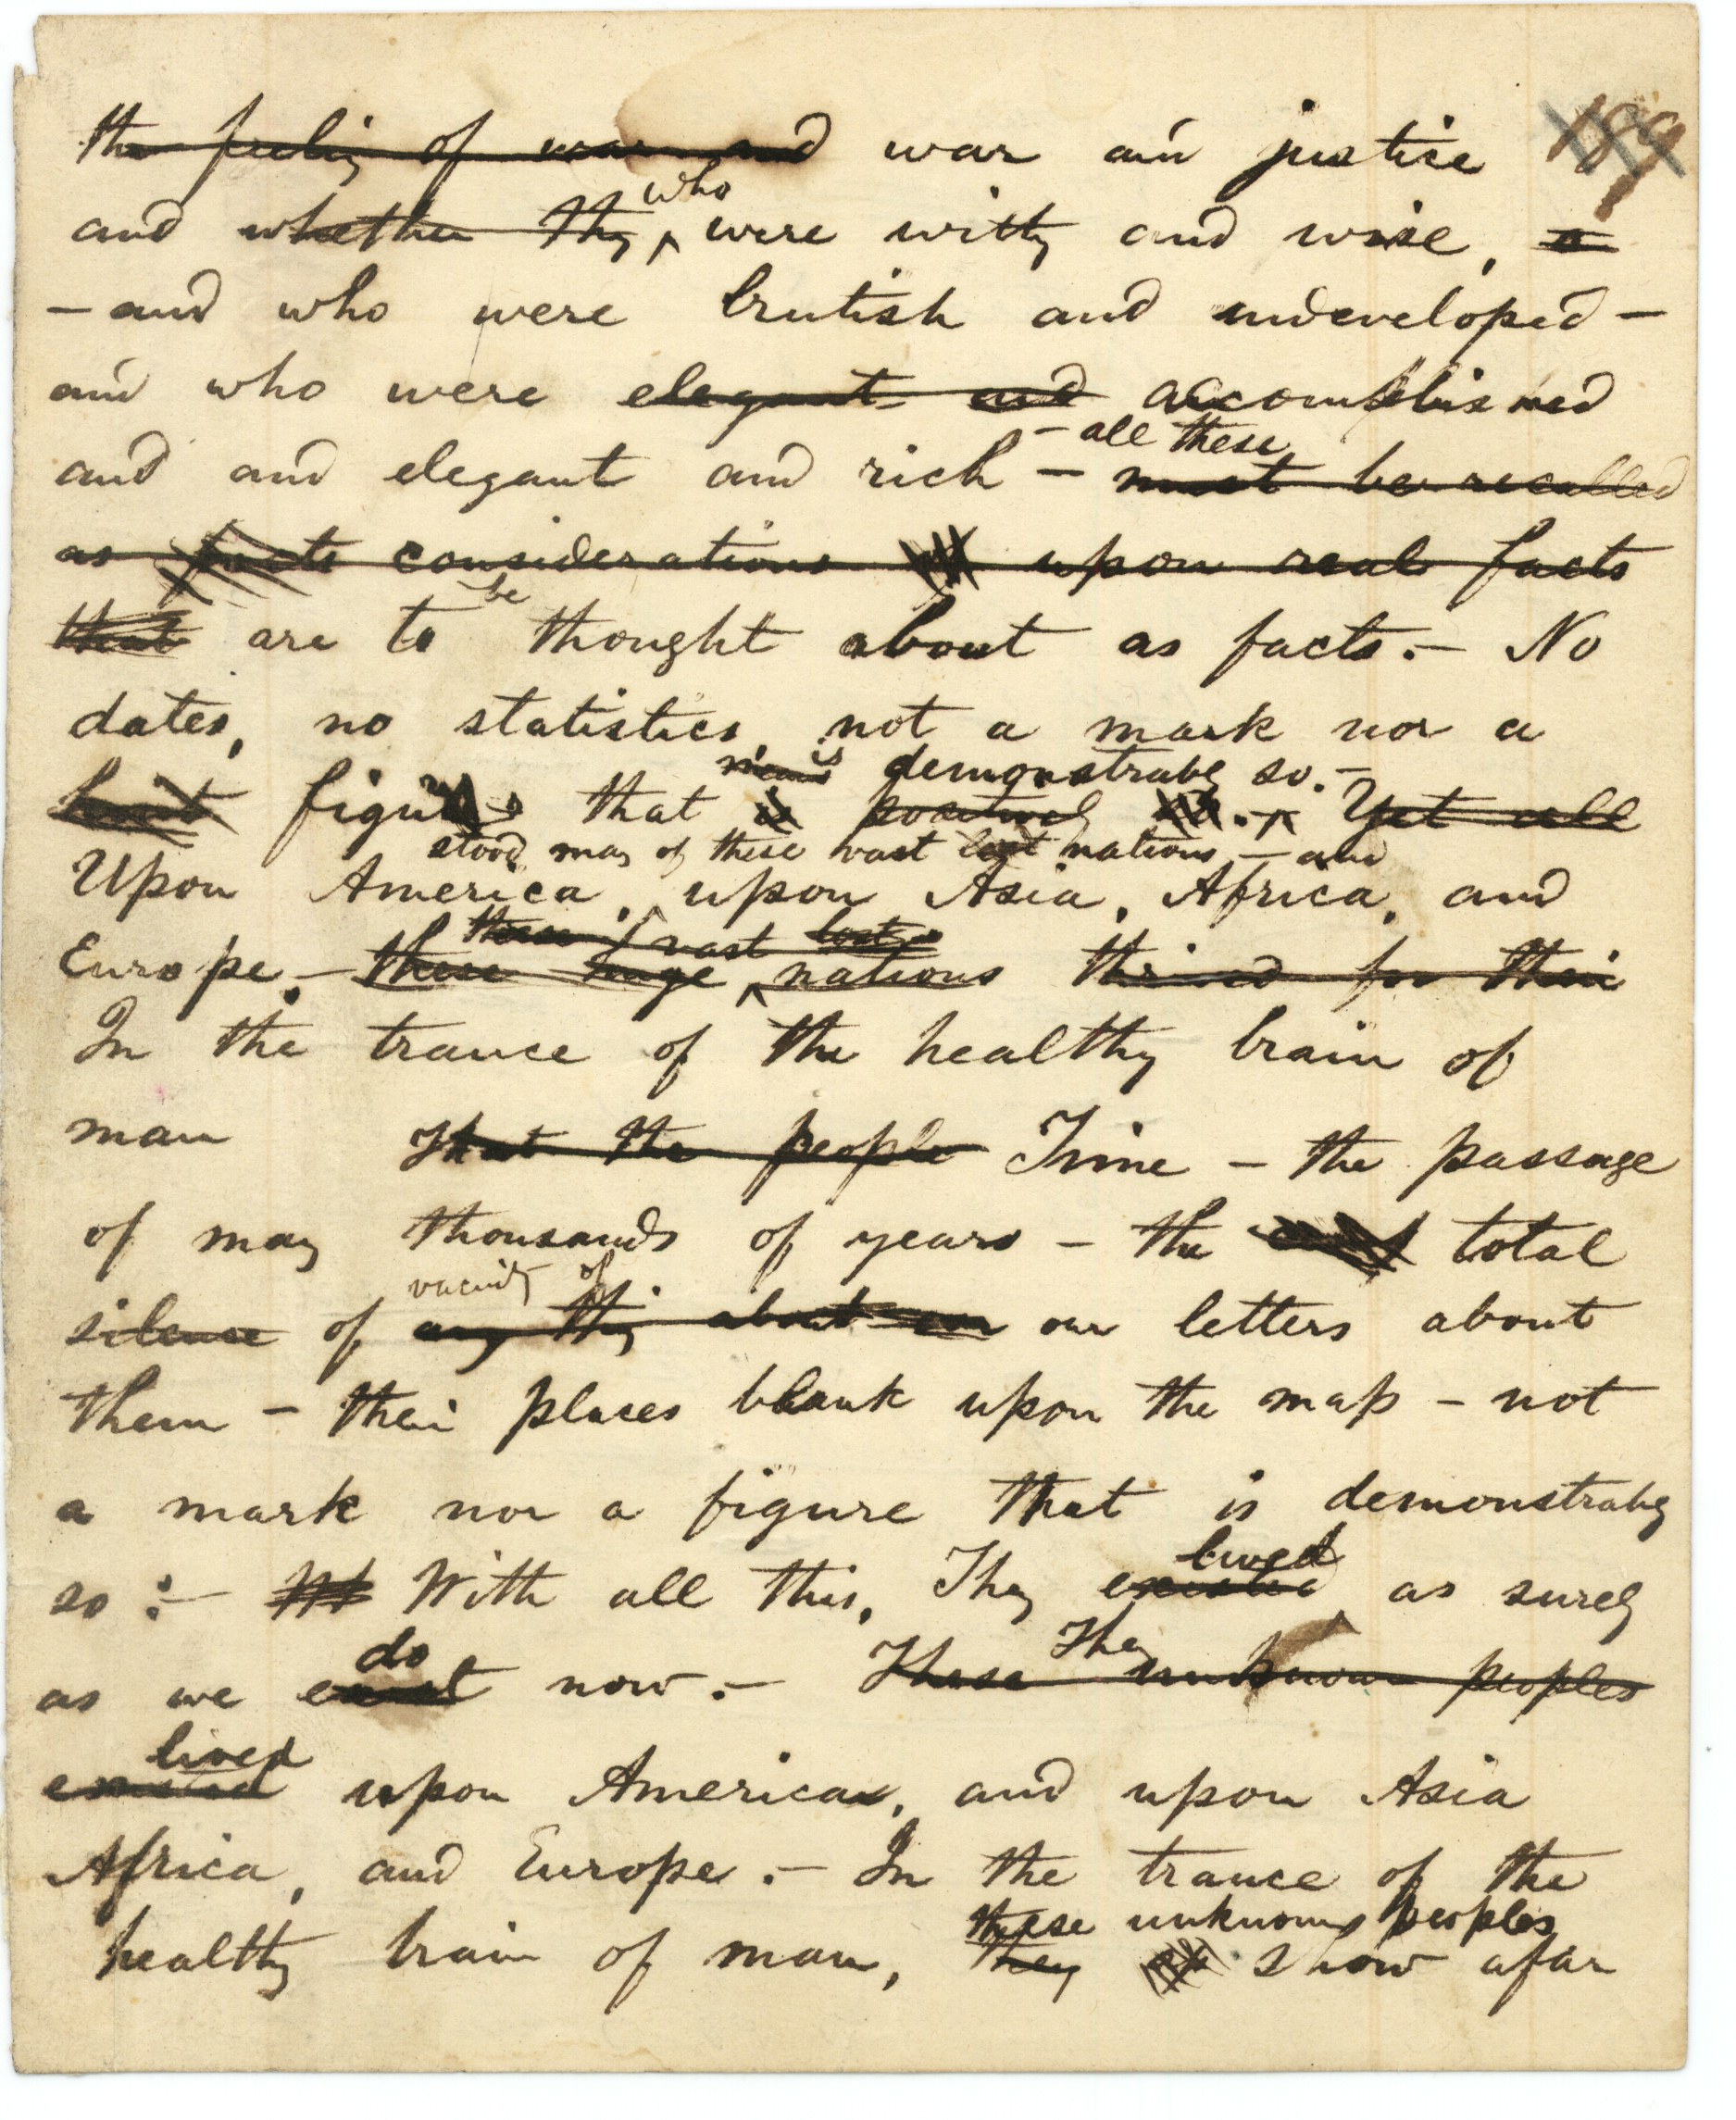 the feeling of war and war and justice 189
who
and whether they ^ were witty and wise, a
— and who were brutish and undeveloped —
and who were elegant and accomplished
— all these
and and elegant and rich — must be recalled
as facts considerations upon real facts
be
that are to thought about as facts.— No
dates, no statistics, not a mark nor a
is demonstrably so.—
figure that is positively so.— ^ Yet all
stood many of these vast lost nations — and
Upon America, upon Asia, Africa, and
these vast lost
Europe.— these huge ^ nations thrived for their
In the trance of the healthy brain of
man That the people Time — the passage
of many thousands of years — the total
vacuity of
silence of any thing about our our letters about
them — their places blank upon the map — not
a mark nor a figure that is demonstrably
lived
so :— With all this, They existed as surely
do They
as we exist now.— These unknown peoples
lived
existed upon America, and upon Asia
Africa, and Europe.— In the trance of the
these unknown peoples
healthy brain of man, they show afar